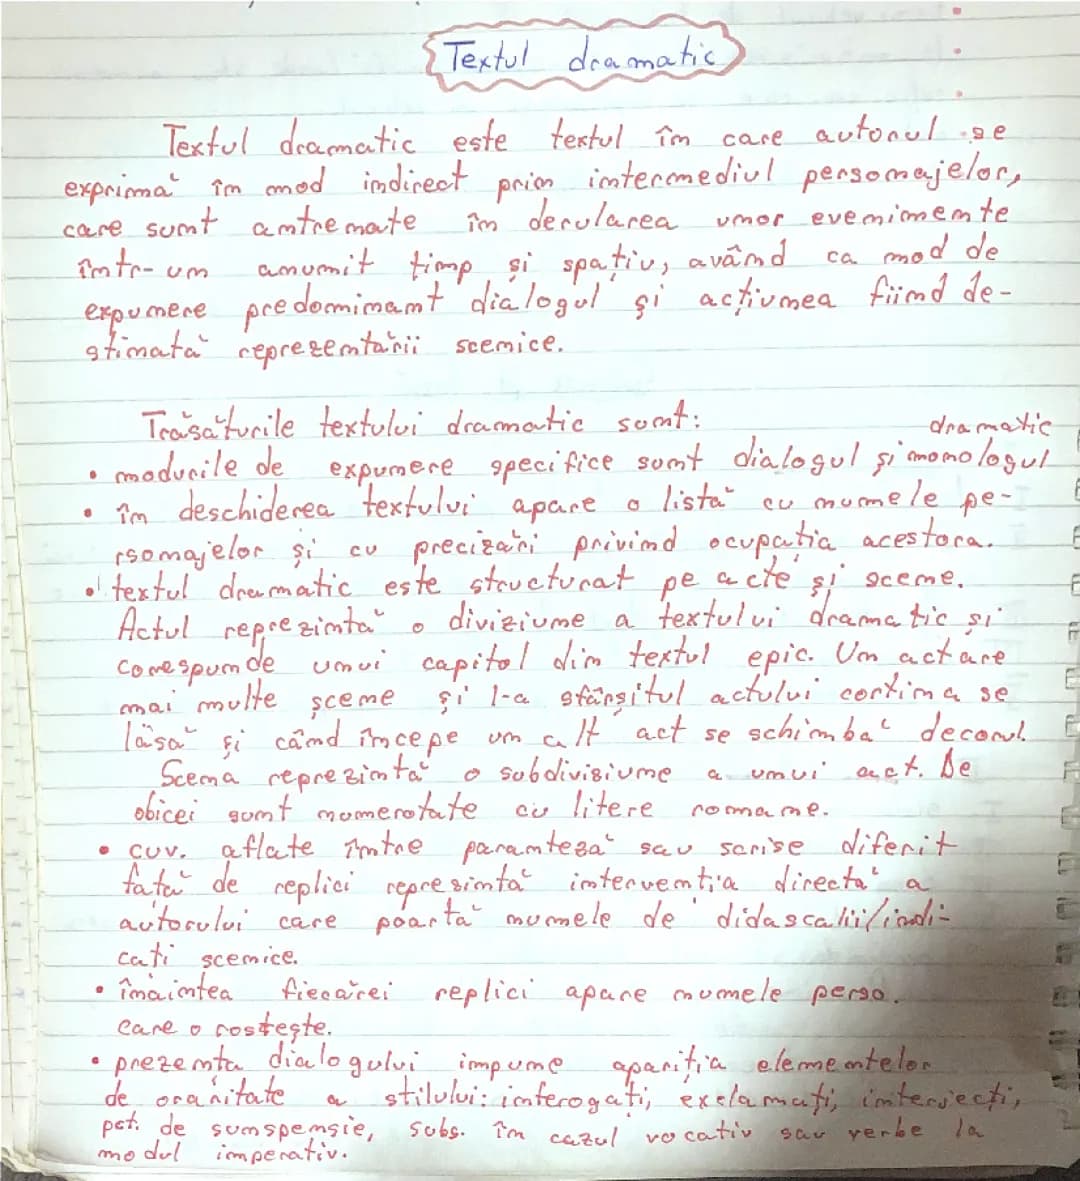 Textul dramatic
Textul dramatic este textul în care autorul se
exprimă în mod indirect prin intermediul personajelor,
care sunt antrenate în derularea unor evenimente
într-un anumit timp și spațiu, având ca mod de
expunere predominant dialogul și acțiunea fiind de-
stinată reprezentării scenice.
Trăsăturile textului dramatic sunt:
dramatic
• modurile de expunere specifice sunt dialogul și monologul
• în deschiderea textului apare o listă cu numele pe-
rsonajelor și cu precizări privind ocupația acestora.
• textul dramatic este structurat pe acte și scene.
Actul reprezintă o diviziune a textului dramatic și
corespunde unui capitol din textul epic. Un act are
mai multe scene și l-a sfârșitul actului cortina se
lăsă și când începe un alt act se schimbă decorul.
Scena reprezintă o subdivisiune a unui act. De
obicei sunt numerotate cu litere romane.
• cuv. aflate între paranteză sau scrise diferit
față de replici represintă intervenția directă a
autorului care poartă numele de didascalii/indi-
cați scenice.
• înaintea fiecărei replici apare numele perso.
care o rostește.
• prezenta dialogului impune apariția elementelor
de oranitate a stilului: interogați, exclamați, interjecți,
pct. de sunspensie, subs. în cazul vocativ sau verbe la
modul imperativ.